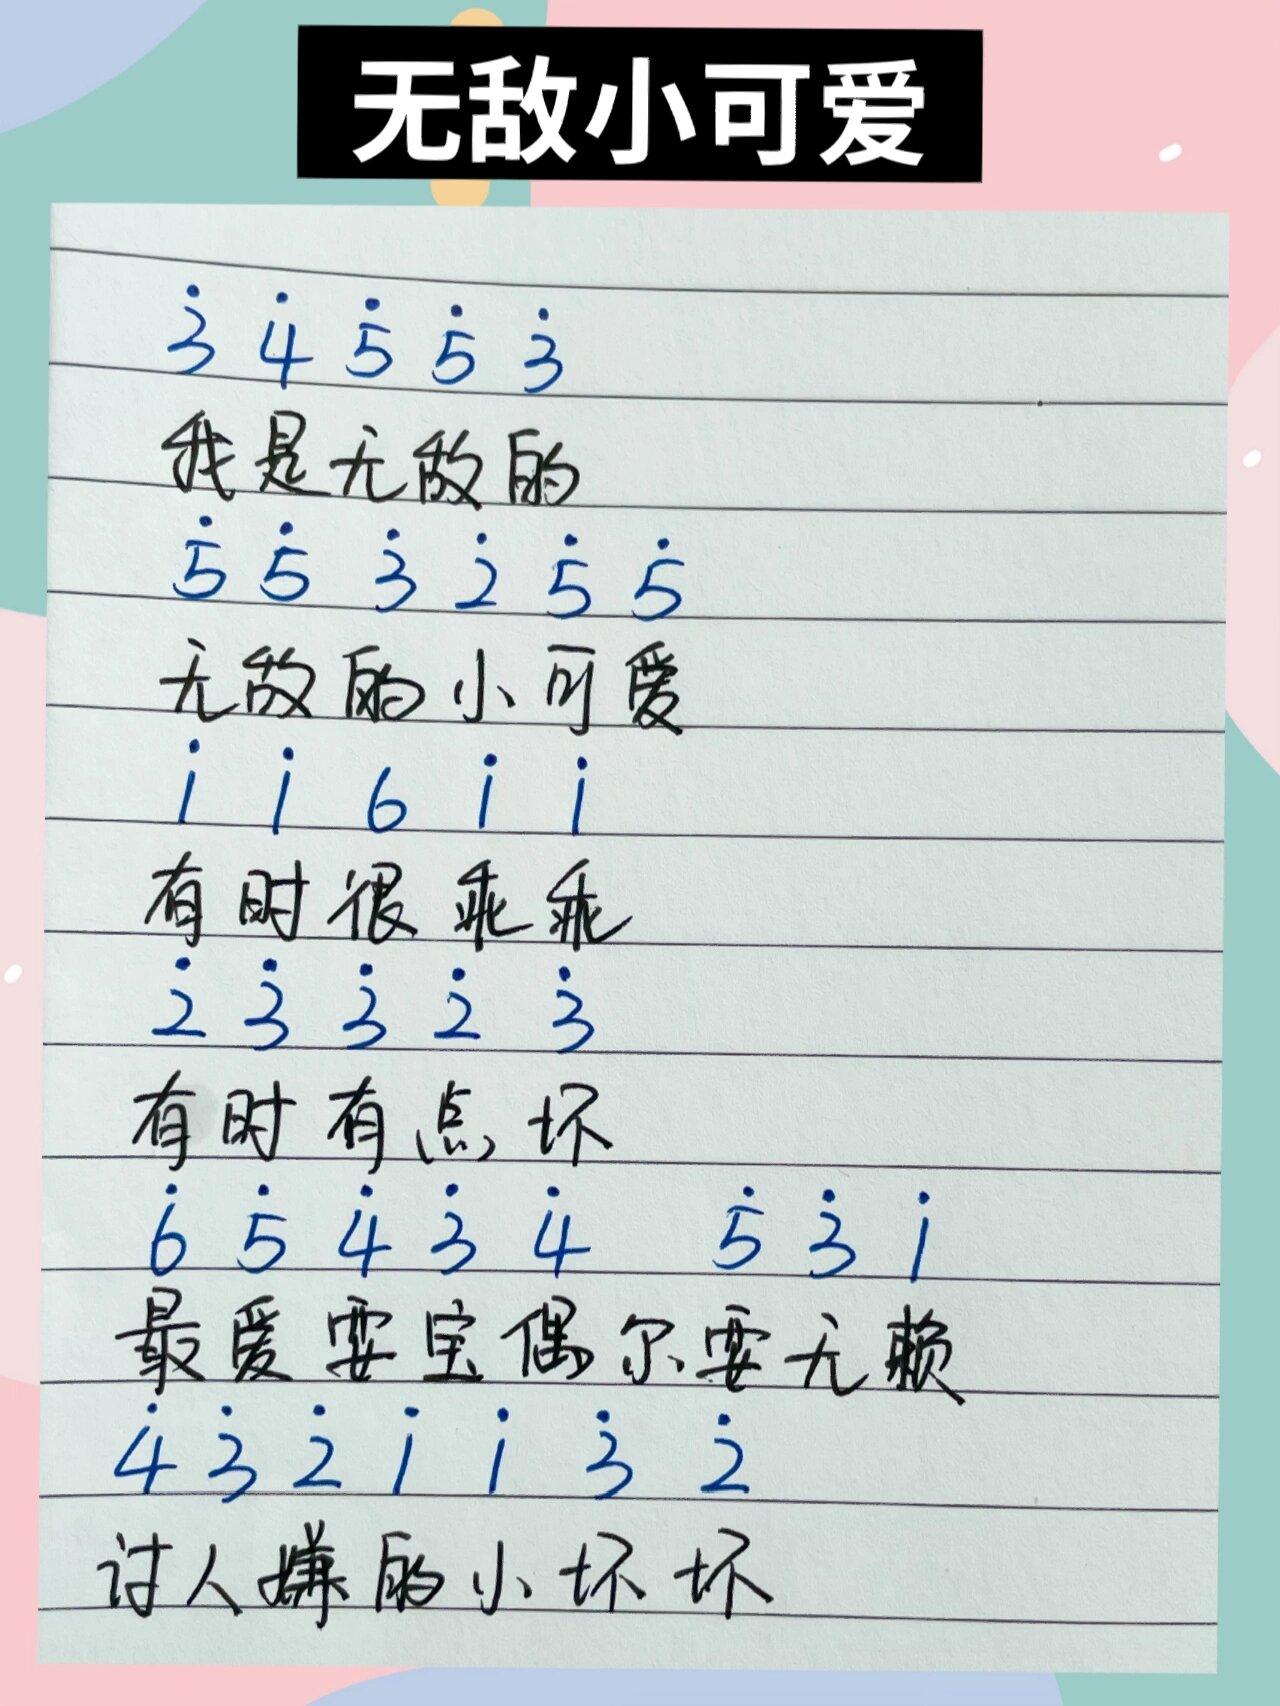 无敌小可爱
3̇ 4̇ 5̇ 5̇ 3̇
我是无敌的
5̇ 5̇ 3̇ 2̇ 5̇ 5̇
无敌的小可爱
1̇ 1̇ 6 1̇ 1̇
有时很乖乖
2̇ 3̇ 3̇ 2̇ 3̇
有时有点坏
6̇ 5̇ 4̇ 3̇ 4̇ 5̇ 3̇ 1̇
最爱耍宝偶尔耍无赖
4̇ 3̇ 2̇ 1̇ 1̇ 3̇ 2̇
讨人嫌的小坏坏